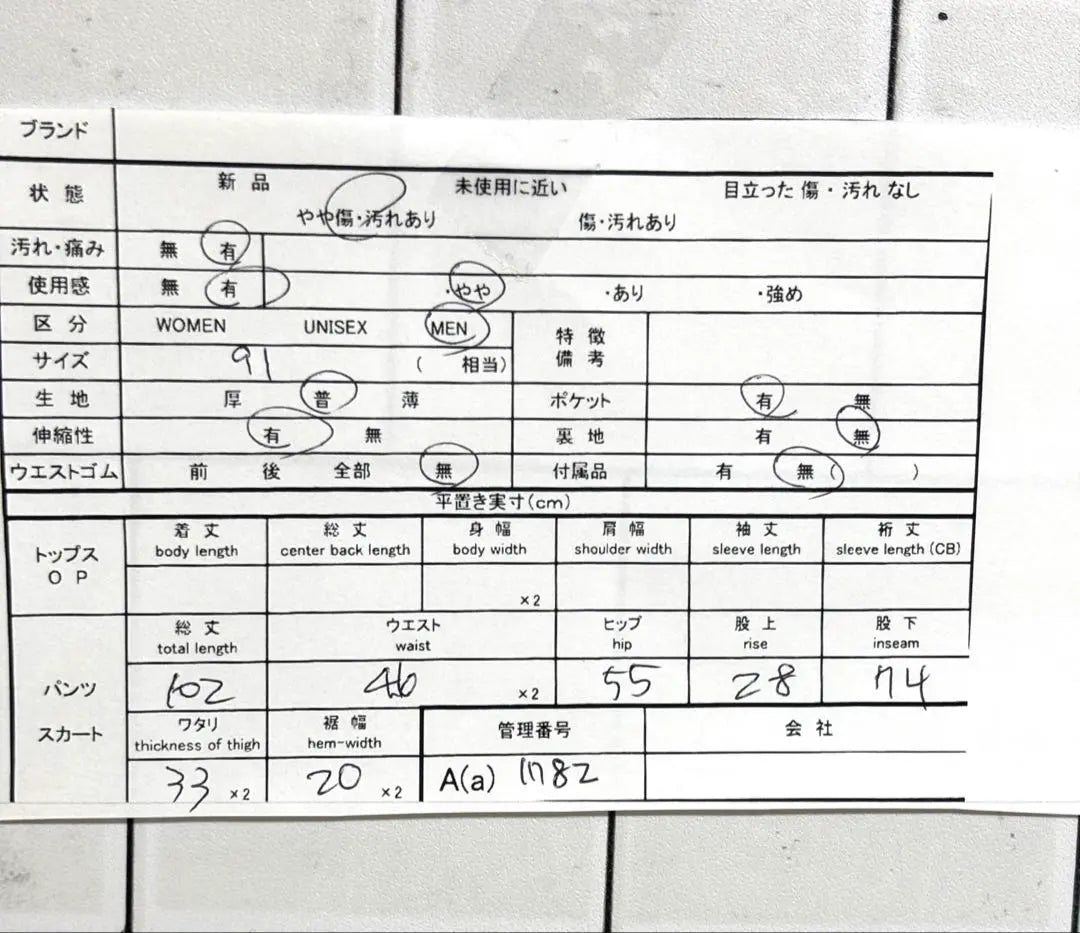 ブランド
状 態 新 品 未使用に近い 目立った 傷・汚れ なし
やや傷・汚れあり 傷・汚れあり
汚れ・痛み 無 有
使用感 無 有 ・やや ・あり ・強め
区 分 WOMEN UNISEX MEN 特 徴
備 考
サイズ 91 ( 相当)
生 地 厚 普 薄 ポケット 有 無
伸縮性 有 無 裏 地 有 無
ウエストゴム 前 後 全部 無 付属品 有 無 ( )
平置き実寸(cm)
トップス
O P
着 丈 総 丈 身 幅 肩 幅 袖 丈 裄 丈
body length center back length body width shoulder width sleeve length sleeve length (CB)
×2
パンツ
スカート
総 丈 ウエスト ヒップ 股 上 股 下
total length waist hip rise inseam
102 46 ×2 55 28 74
ワタリ 裾 幅 管理番号 会 社
thickness of thigh hem-width
33 ×2 20 ×2 A(a) 1782